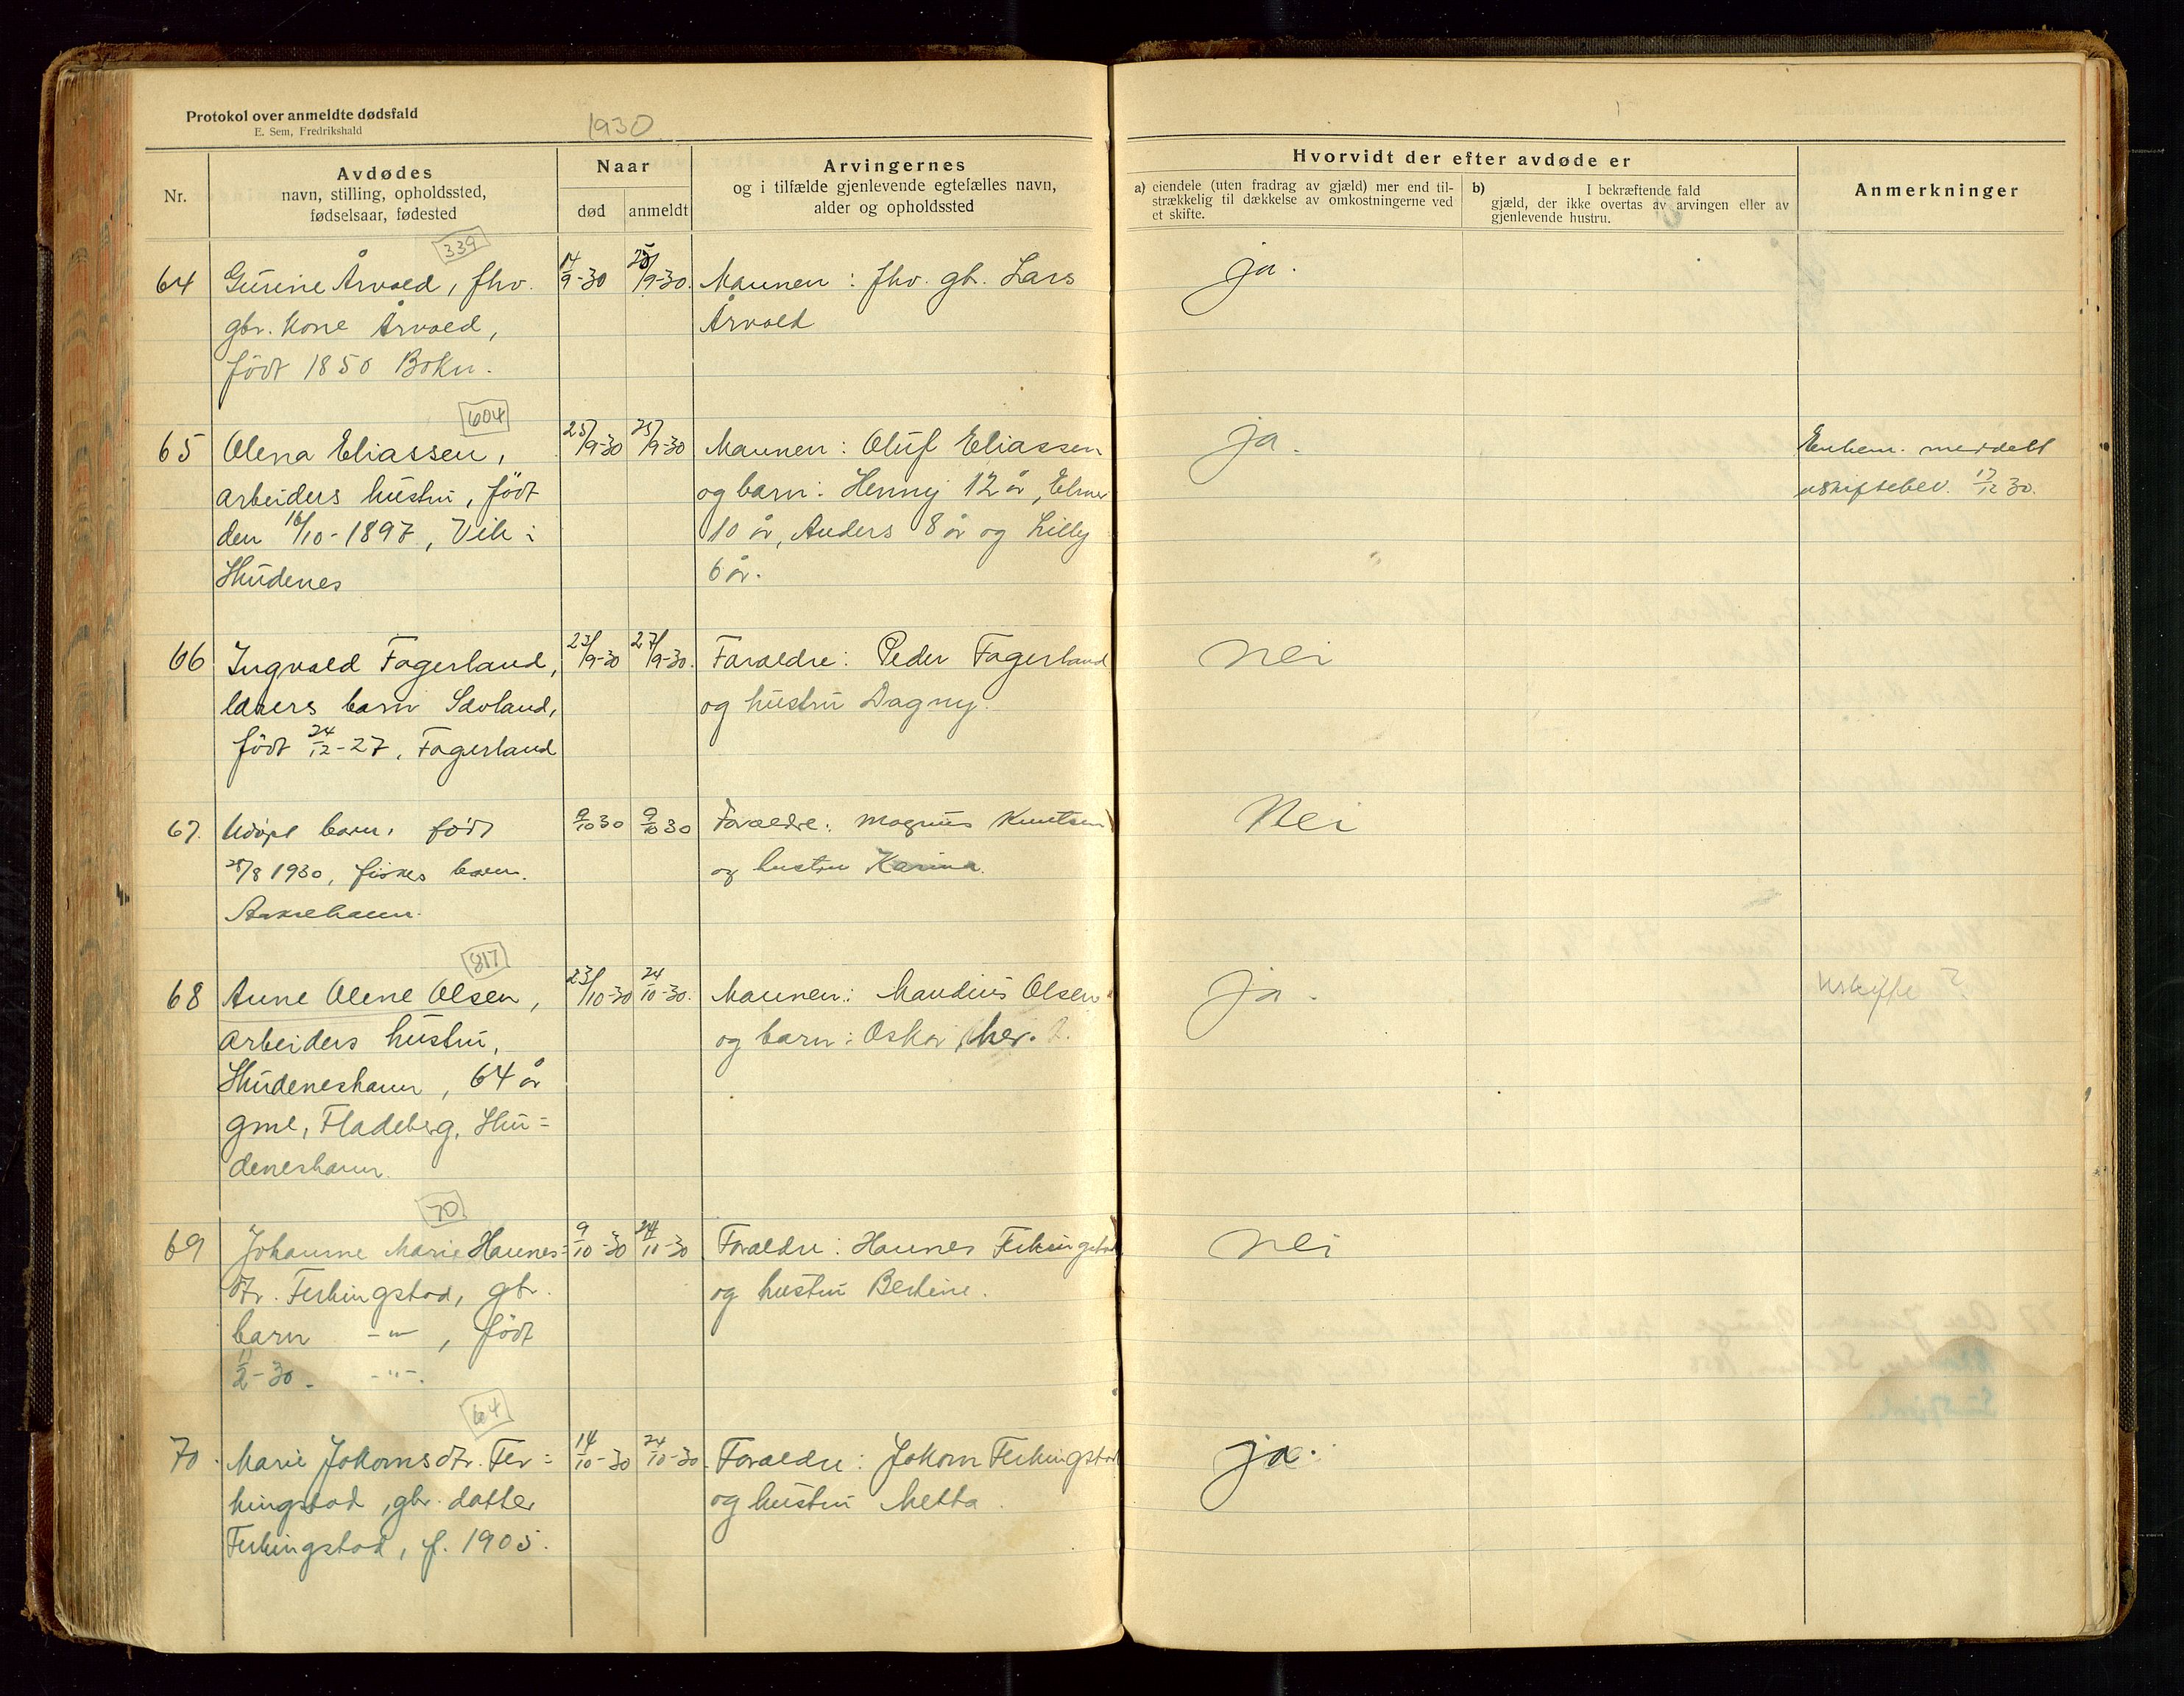 Protokol over anmeldte dødsfald
E. Sem, Fredrikshald
1930
Nr.
Avdødes
navn, stilling, opholdssted,
fødselsaar, fødested
Naar
død
anmeldt
Arvingernes
og i tilfælde gjenlevende egtefælles navn,
alder og opholdssted
Hvorvidt der efter avdøde er
a) eiendele (uten fradrag av gjæld) mer end til-
strækkelig til dækkelse av omkostningerne ved
et skifte.
b) I bekræftende fald
gjæld, der ikke overtas av arvingen eller av
gjenlevende hustru.
Anmerkninger
339
64 Gurine Årvold, fhv. 14/9-30 /9-30. Mannen: fhv. gbr. Lars ja.
gbr. kone Årvold, Årvold
født 1850 Bokn.
604
65 Olena Eliassen, 25/9-30 25/9-30 Mannen: Oluf Eliassen ja. Enkem. meddelt
arbeiders hustru, født og barn: Henny 12 år, Elmer uskiftebev. 17/12 30.
den 16/10-1897, Vik i 10 år, Anders 8 år og Lilly
Skudenes 6 år.
66 Ingvald Fagerland, 23/9-30 27/9-30. Forældre: Peder Fagerland nei
lærers barn Sævland, og hustru Dagny.
født 24/12-27, Fagerland
67. Udøpt barn, født 9/10 30 9/10 30 Forældre: Magnus Knutsen Nei
28/8 1930, fiskes barn. og hustru Karina.
Aakrehavn.
817
68 Anne Olene Olsen, 23/10-30 24/10-30. Mannen: Mandius Olsen ja. Uskifte ?
arbeiders hustru, og barn: Oskar, her.
Skudeneshavn, 64 år
gml, Fladeberg, Sku-
deneshavn.
70
69 Johanne Marie Hannes- 9/10-30 24/10-30 Forældre: Hannes Ferkingstad nei
dtr. Ferkingstad, gbr. og hustru Bertine.
barn -"-, født
11/2-30. -"-.
64
70. Marie Jokomsdtr. Fer- 14/10-30 24/10-30. Forældre: Jakom Ferkingstad ja.
kingstad, gbr. datter og hustru Metta.
Ferkingstad, f. 1905.